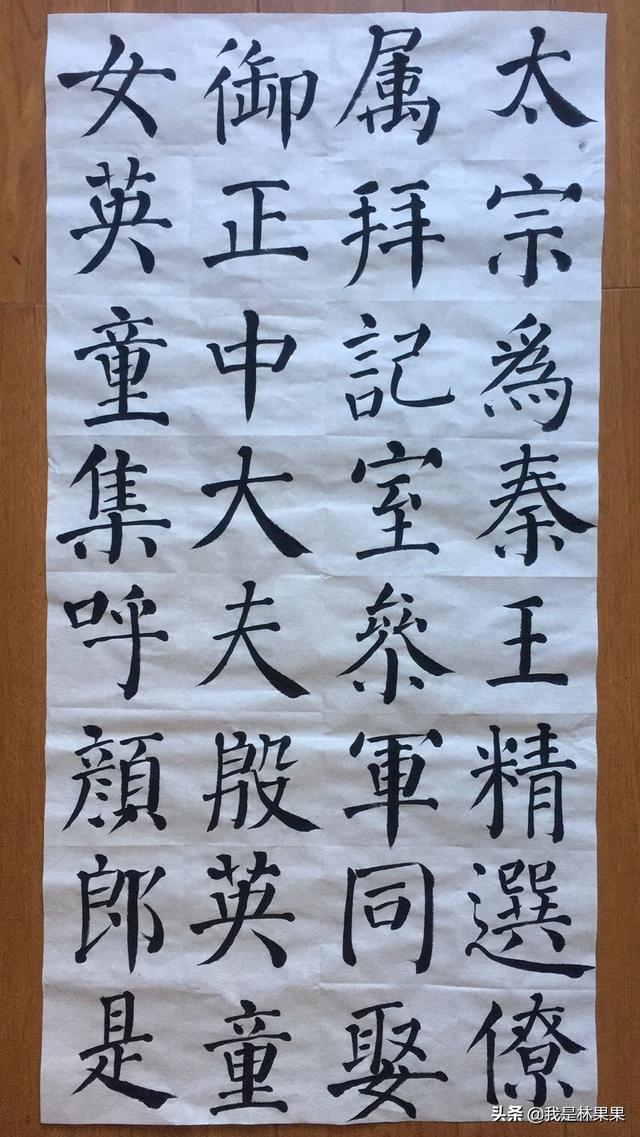 太宗爲秦王精選僚
属拜記室叅軍同娶
御正中大夫殷英童
女英童集呼顔郎是
头条 @我是林果果